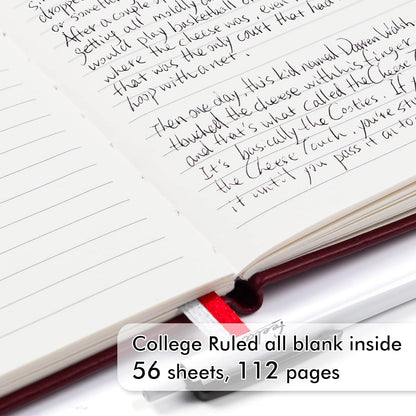 dropped
or something
After a couple
getting all moldy a
would play basketball o
where the cheese was, ever
that was the only court that had
hoop with a net.
Then one day, this kid named Darren Walsh
touched the cheese with his finger
and that's what called the Cheese
It's basically the Cooties. If
the Cheese Touch, you're st
it until you pass it on to
College Ruled all blank inside
56 sheets, 112 pages